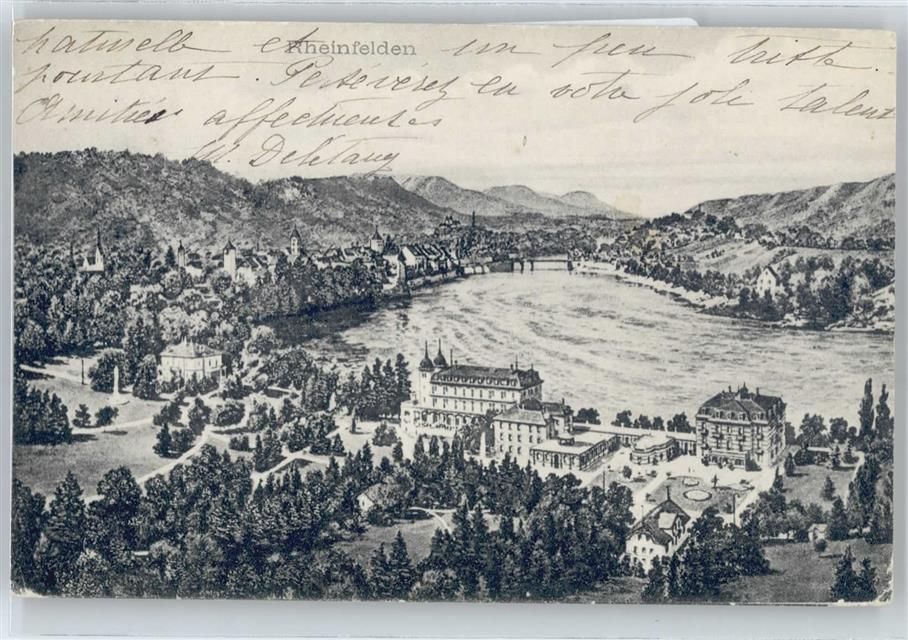 naturelle et un peu triste.
Rheinfelden
pourtant. Persévérez en votre joli talent
Amitiés affectueuses
M. Deletang